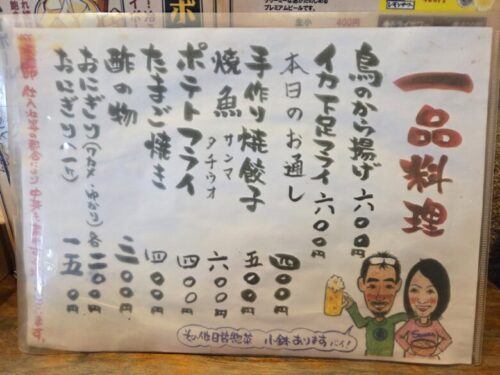 一品料理
鳥のから揚げ 六〇〇円
イカ下足フライ 六〇〇円
本日のお通し 四〇〇円
手作り焼餃子 五〇〇円
焼魚 サンマ タチウオ 六〇〇円
ポテトフライ 四〇〇円
たまご焼き 四〇〇円
酢の物 三〇〇円
おにぎり(ワカメ・ゆかり)各 二〇〇円
おにぎり(一ケ) 一五〇円
その他日替惣菜
小鉢あります
生小 400円
プレミアムビールです。